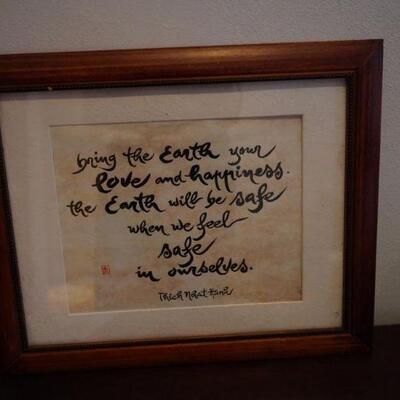 bring the Earth your
love and happiness.
the Earth will be safe
when we feel
safe
in ourselves.
Thich Nhat Hanh